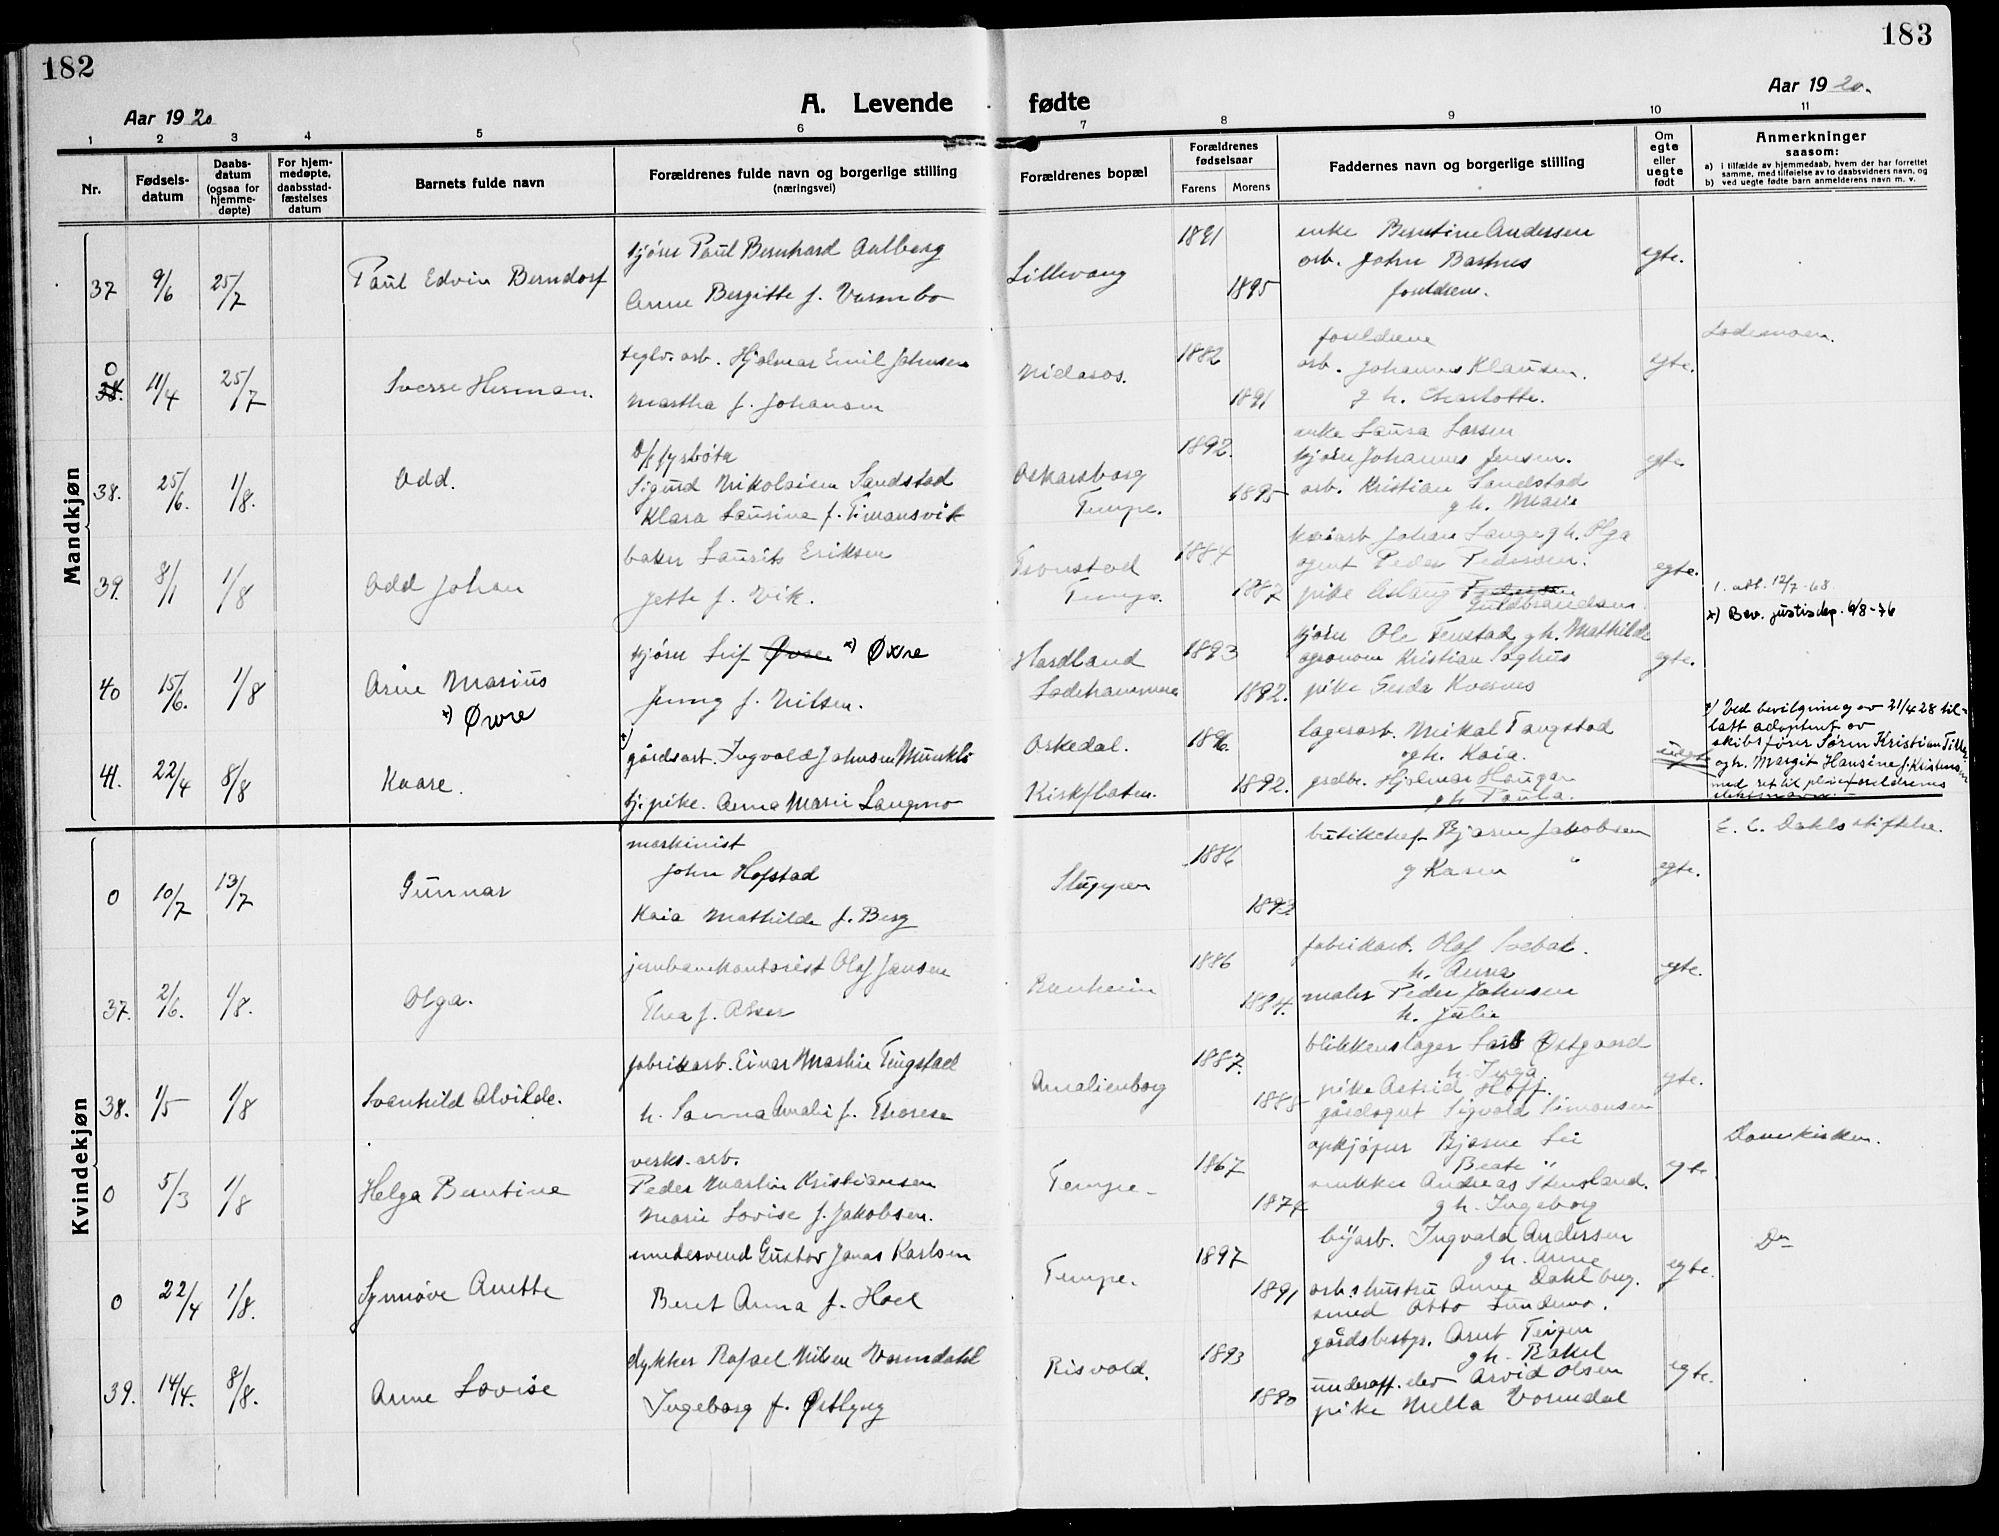 182
183
Aar 1920
A. Levende fødte
Aar 1920.
1 2 3 4 5 6 7 8 9 10 11
Nr.
Fødsels-
datum
Daabs-
datum
(ogsaa for
hjemme-
døpte)
For hjem-
medøpte,
daabsstad-
fæstelses
datum
Barnets fulde navn
Forældrenes fulde navn og borgerlige stilling
(næringsvei)
Forældrenes bopæl
Forældrenes
fødselsaar
Farens Morens
Faddernes navn og borgerlige stilling
Om
egte
eller
uegte
født
Anmerkninger
saasom:
a) i tilfælde av hjemmedaab, hvem der har forrettet
samme, med tilføielse av to daabsvidners navn, og
b) ved uegte fødte barn anmelderens navn m. v.
Mandkjøn
37 9/6 25/7 Paul Edvin Berndorf
kjører Paul Bernhard Aalberg
Anne Bergitte f. Varmbo
Lillevang
1891
1895
enke Berntine Andersen
arb. John Bashus
foreldrene.
egte.
0
38. 11/4 25/7 Sverre Herman.
teglv. arb. Hjalmar Emil Johnsen
Martha f. Johansen
Nidaros.
1882
1891
foreldrene
arb. Johannes Klausen.
g h. Charlotte.
egte.
Lademoen.
38. 25/6. 1/8. Odd.
fyrbøter
Sigurd Nikolaisen Sandstad
Klara Laurine f. Timansvik
Oskarsborg
Tempe.
1892.
1895
enke Laura Larsen
kjører Johannes Jensen.
arb. Kristian Sandstad
g h. Marie
egte.
39. 8/1 1/8 Odd Johan
baker Laurits Eriksen
Jette f. Vik.
Tronstad
Tempe.
1884
1887
kaiarb Johan Lange g h. Olga
agent Peder Pedersen.
pike Aslaug
Guldbrandsen.
egte.
1. adl. 12/7-68.
x) Bev. justisdep. 6/8-76
40 15/6. 1/8 Arne Marius
x) Øvre
kjører Leif x) Øvre
Jenny f. Nilsen.
Hardland
Ladehammeren
1893
1892.
kjører Ole Tenstad g h. Mathilde
agronom Kristian Saghus
pike Gerda Kvernes
egte.
41. 22/4 8/8 Kaare.
x)
gårdsarb. Ingvold Johnsen Munklo
tj. pike. Anna Marie Langmo
Oskedal.
Kirkflaten.
1896.
1892.
lagerarb. Mikal Tangstad
og h. Kaia.
grdbr. Hjalmar Haugan
g h Paula.
uegte
x) Ved bevilgning av 21/4 28 til-
latt adoptert av
skibsfører Søren Kristian Tiller
og h. Margit Hansine f. Kristensen
med ret til pleieforeldrenes
slektsnavn.
Kvindekjøn
0 10/7 13/7 Gunnar
maskinist
John Hofstad
Kaia Mathilde f. Berg
Sluppen
1886
1893
butikchef Bjarne Jakobsen
g Karen "
egte.
E. C. Dahls stiftelse.
37. 2/6. 1/8. Olga.
jernbanekontorist Olaf Jansen
Thea f. Osser
Ranheim
1886
1884.
fabrikarb. Olaf Svebak.
h. Anna
maler Peder Johnsen
h. Julie
egte.
38. 1/5 1/8 Svanhild Alvilde.
fabrikarb. Einar Martin Tingstad
h. Sanna Amalie f. Thorese
Amalienborg
1887.
1888
blikkenslager Lars Østgaard
h. Inga.
pike Astrid Hoff.
gårdsgut Sigvald Simonsen
egte.
0 5/3 1/8 Helga Berntine
verks. arb.
Peder Martin Kristiansen
Marie Lovise f. Jakobsen.
Tempe
1867
1874
opkjøper Bjarne Lie
Beate "
snekker Andreas Stensland.
g h. Ingeborg
egte
Domkirken.
0 22/4 1/8. Synnøve Anette
smedesvend Gustav Jonas Karlsen
Beret Anna f. Hoel
Tempe.
1897
1891
byarb. Ingvald Andersen
g h. Anne
arb.s hustru Anne Dahlberg.
smed Otto Lundemo.
egte.
Do
39. 14/4. 8/8. Anne Lovise
dykker Rafael Nilsen Vormdahl
Ingeborg f. Østlyng
Risvold.
1893
1890
gårdsbestyr. Arnt Teigen
g h. Rakel
underoff. elev Arvid Olsen
pike Milla Vormdal
egte.